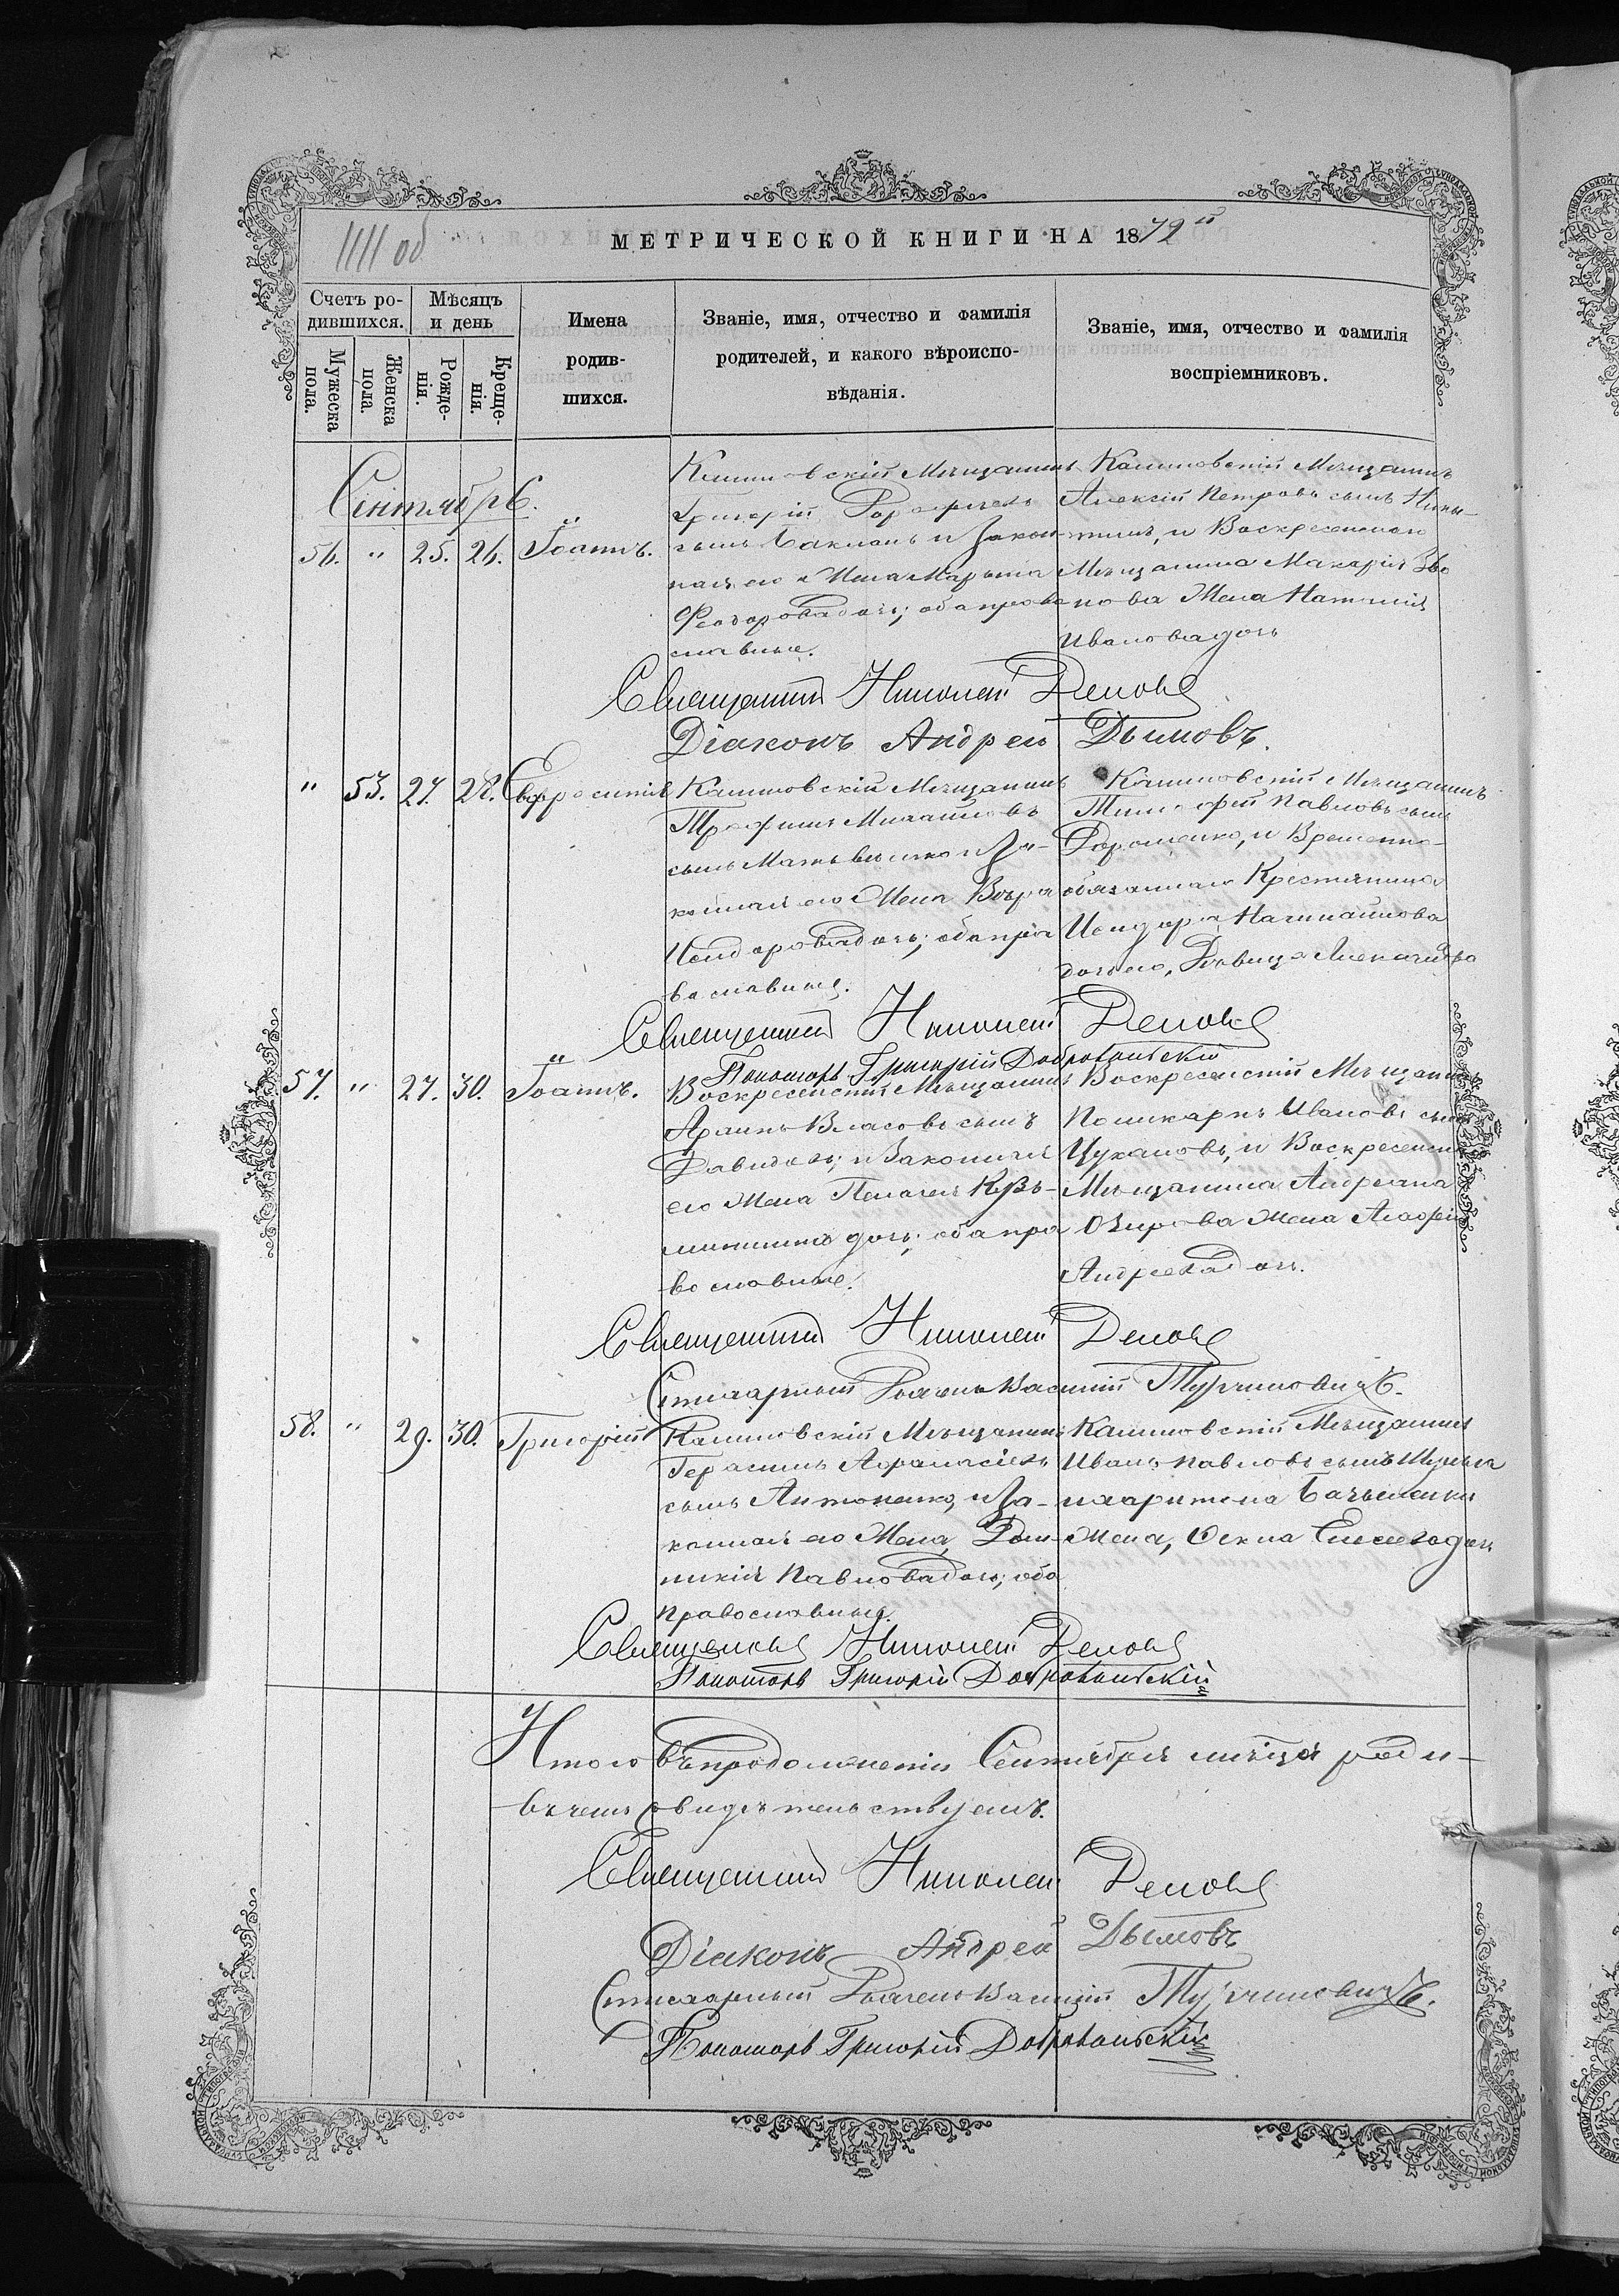 1111 об
МЕТРИЧЕСКОЙ КНИГИ НА 1872й
Счетъ ро-
дившихся.
Мѣсяцъ
и день
Мужеска
пола.
Женска
пола.
Рожде-
нія.
Креще-
нія.
Имена
родив-
шихся.
Званіе, имя, отчество и фамилія
родителей, и какого вѣроиспо-
вѣданія.
Званіе, имя, отчество и фамилія
воспріемниковъ.
Сентябрь.
56. " 25. 26. Іоаннъ.
Калиновскій Мѣщанинъ
Григорій
сынъ Бакланъ и Закон-
ная его Жена Марѳа
Феодорова дочь; оба право
славные.
Калиновскій Мѣщанинъ
Алексій Петровъ сынъ Ники-
тинъ, и Воскресенскаго
Мѣщанина Макарія
нова Жена Наталія
Иванова дочь
Священникъ Николай
Діаконъ Андрей Дымовъ.
" 53. 27. 28. Евфросинія
Калиновскій Мѣщанинъ
Трофимъ Михайловъ
сынъ Матвѣенко и За-
конная его Жена Вѣра
Исидорова дочь; оба пра
вославные.
Калиновскій Мѣщанинъ
Тимофей Павловъ сынъ
Дорошенко, и Временно-
обязаннаго Крестьянина
Исидора
дочь его, Дѣвица Александра
Священникъ Николай
Пономарь Григорій Добровольскій
57. " 27. 30. Іоаннъ.
Воскресенскій Мѣщанинъ
Власовъ сынъ
Давидовъ; и Законная
его Жена Пелагея Кузь-
минична дочь; оба пра
вославные.
Воскресенскій Мѣщанинъ
Поликарпъ Ивановъ сынъ
Цукановъ, и Воскресенскаго
Мѣщанина Андреана
Озирова Жена Агафія
Андреева дочь.
Священникъ Николай
Стихарный Дьячекъ Василій Турчиновичъ.
58. " 29. 30. Григорій
Калиновскій Мѣщанинъ
Герасимъ Афанасіевъ
сынъ Антоненко, и За-
конная его Жена, Дом-
никія Павлова дочь; оба
православные.
Калиновскій Мѣщанинъ
Иванъ Павловъ сынъ
Жена, Текла дочь
Священникъ Николай
Пономарь Григорій Добровольскій
Итого въ продолженіи Сентября мѣсяца роди-
въ чемъ свидѣтельствуемъ.
Священникъ Николай
Діаконъ Андрей Дымовъ
Стихарный Дьячекъ Василій Турчиновичъ.
Пономарь Григорій Добровольскій